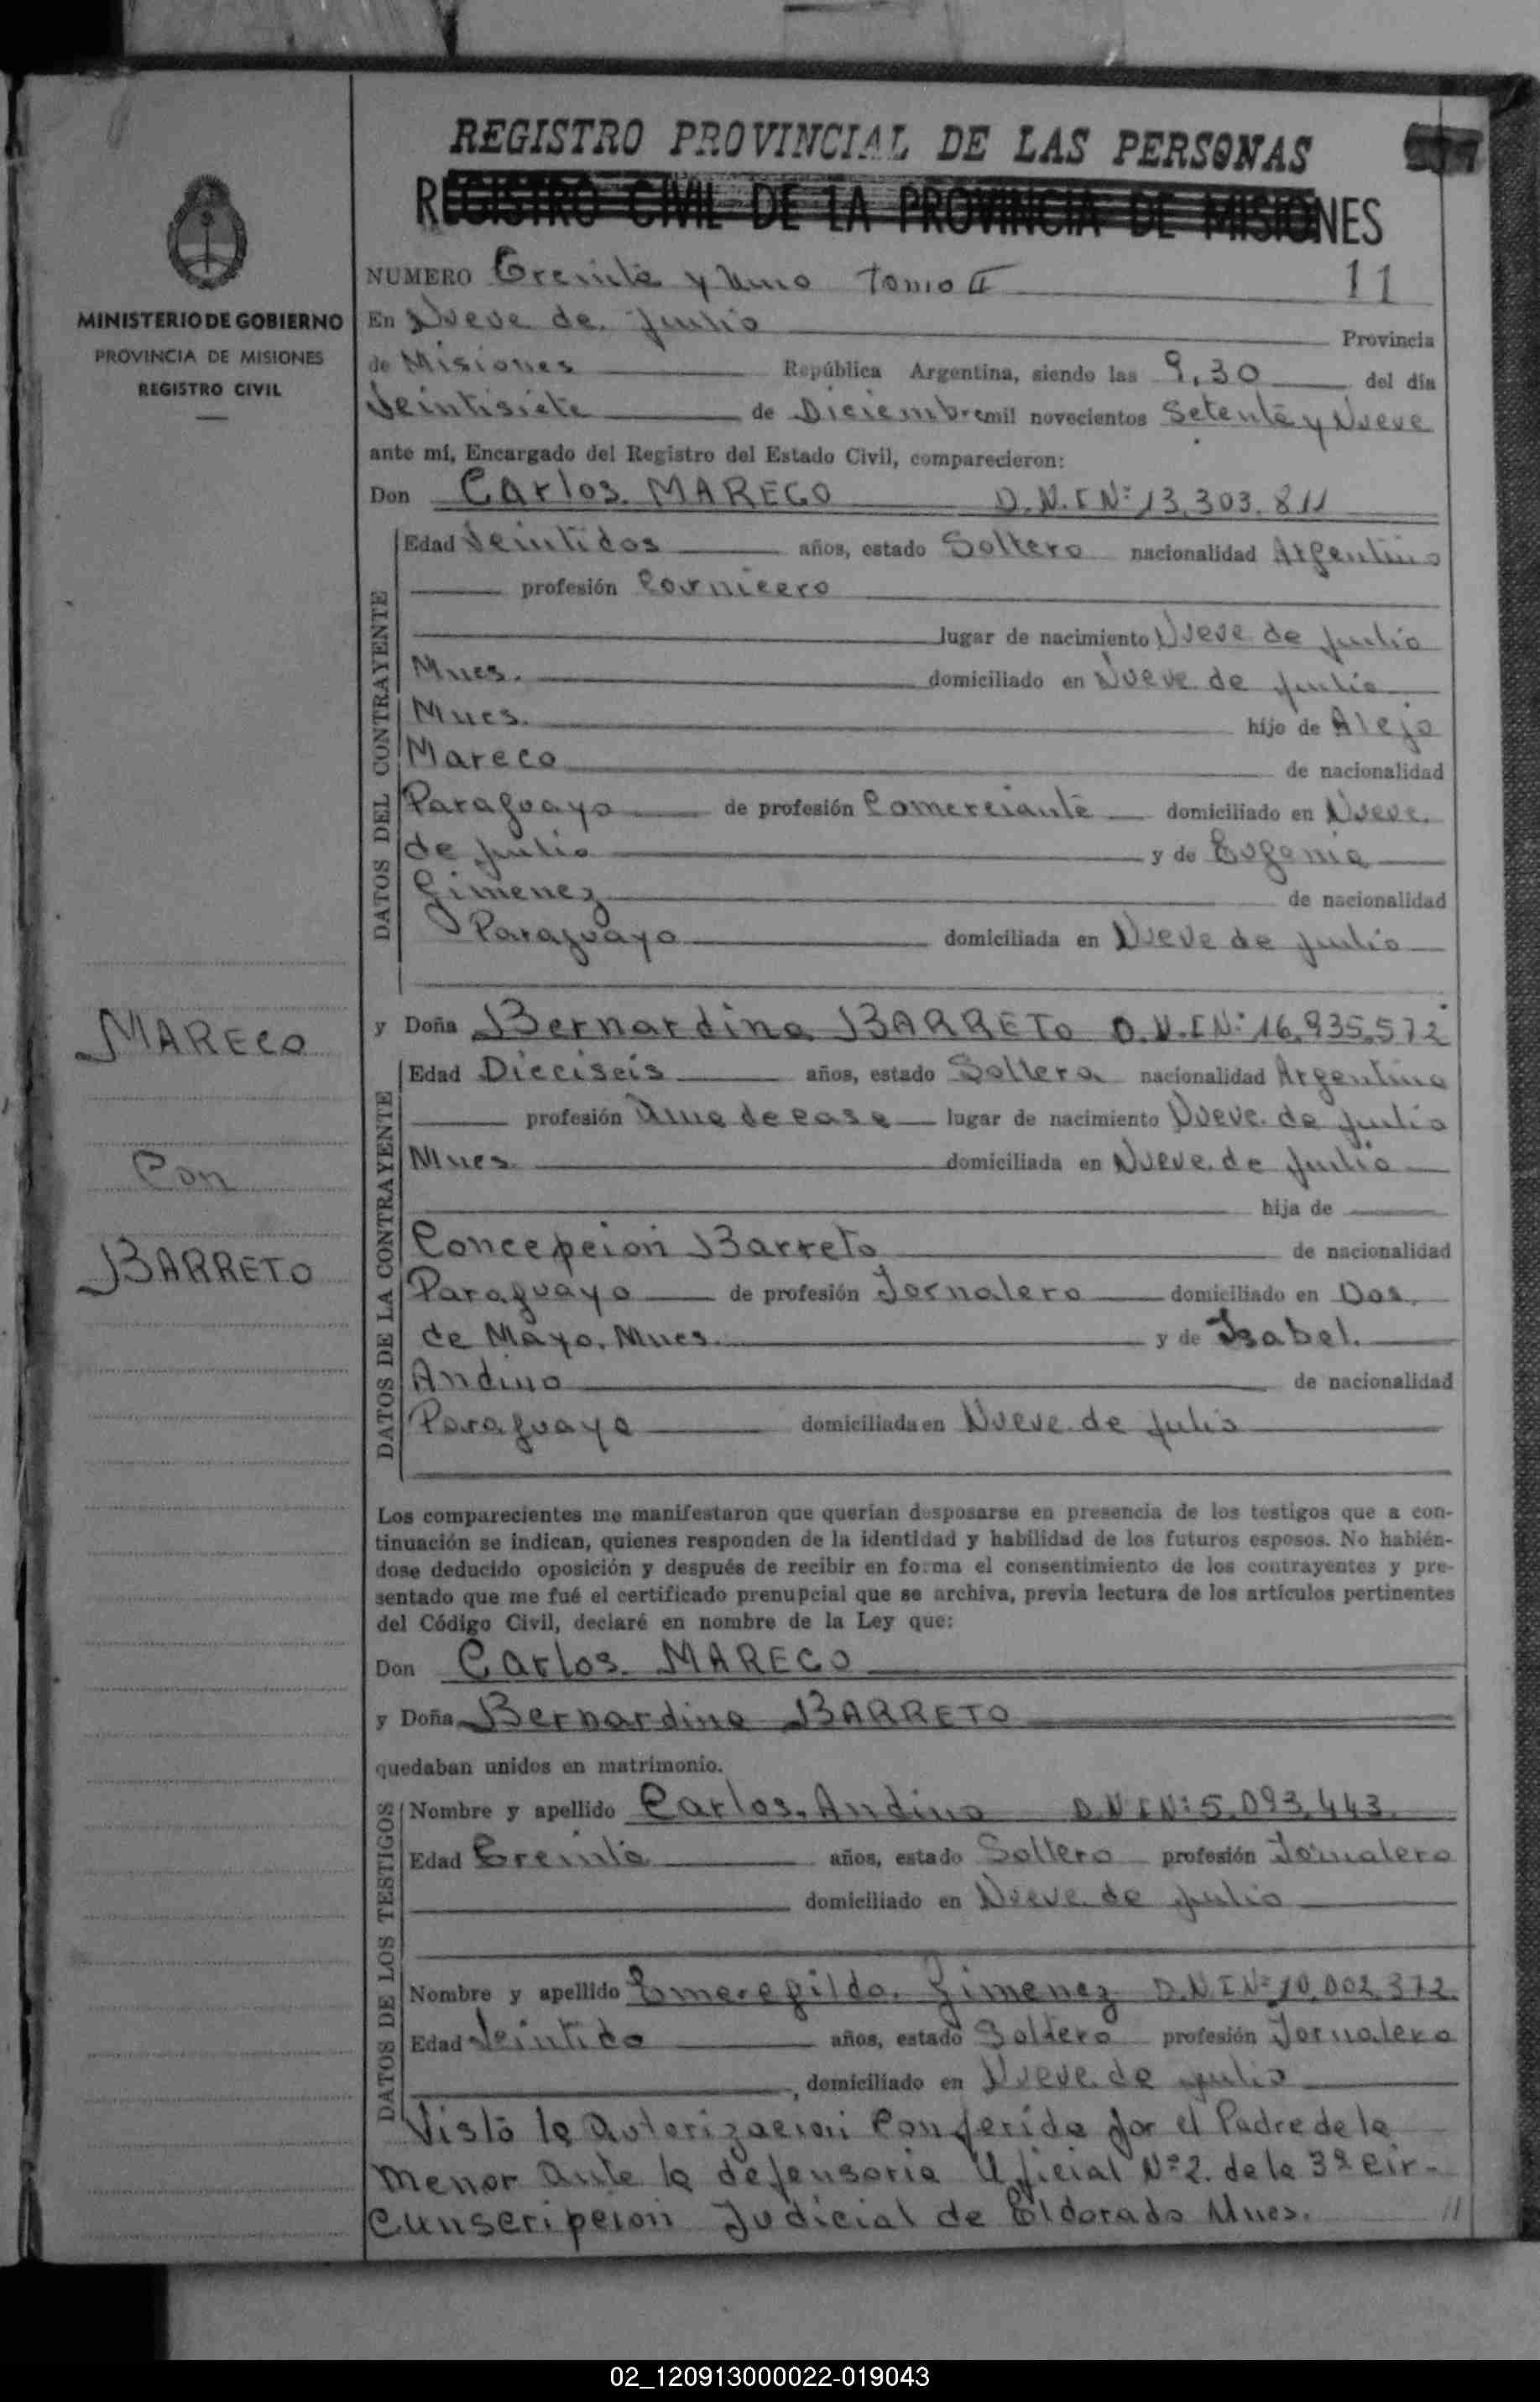 REGISTRO PROVINCIAL DE LAS PERSONAS
REGISTRO CIVIL DE LA PROVINCIA DE MISIONES
MINISTERIO DE GOBIERNO
PROVINCIA DE MISIONES
REGISTRO CIVIL
NUMERO Treinta y Uno Tomo II 11
En Nueve de Julio Provincia
de Misiones República Argentina, siendo las 9,30 del día
Veintisiete de Diciembre mil novecientos Setenta y Nueve
ante mí, Encargado del Registro del Estado Civil, comparecieron:
Don Carlos MARECO D.N.I Nº 13.303.811
DATOS DEL CONTRAYENTE
Edad Veintidos años, estado Soltero nacionalidad Argentino
profesión Carnicero
lugar de nacimiento Nueve de Julio
Mnes. domiciliado en Nueve de Julio
Mnes. hijo de Alejo
Mareco de nacionalidad
Paraguayo de profesión Comerciante domiciliado en Nueve
de Julio y de Eugenia
Gimenez de nacionalidad
Paraguaya domiciliada en Nueve de Julio
MARECO
Con
BARRETO
y Doña Bernardina BARRETO D.N.I Nº 16.935.572
DATOS DE LA CONTRAYENTE
Edad Dieciseis años, estado Soltera nacionalidad Argentina
profesión Ama de casa lugar de nacimiento Nueve de Julio
Mnes. domiciliada en Nueve de Julio
hija de
Concepcion Barreto de nacionalidad
Paraguayo de profesión Jornalero domiciliado en Dos
de Mayo. Mnes. y de Isabel
Andino de nacionalidad
Paraguaya domiciliada en Nueve de Julio
Los comparecientes me manifestaron que querían desposarse en presencia de los testigos que a con-
tinuación se indican, quienes responden de la identidad y habilidad de los futuros esposos. No habién-
dose deducido oposición y después de recibir en forma el consentimiento de los contrayentes y pre-
sentado que me fué el certificado prenupcial que se archiva, previa lectura de los artículos pertinentes
del Código Civil, declaré en nombre de la Ley que:
Don Carlos MARECO
y Doña Bernardina BARRETO
quedaban unidos en matrimonio.
DATOS DE LOS TESTIGOS
Nombre y apellido Carlos Andino D.N.I Nº 5.093.443
Edad Treinta años, estado Soltero profesión Jornalero
domiciliado en Nueve de Julio
Nombre y apellido Emeregildo Gimenez D.N.I Nº 10.002.372
Edad Veintido años, estado Soltero profesión Jornalero
, domiciliado en Nueve de Julio
Visto la autorizacion Conferida por el Padre de la
menor ante la defensoria Oficial Nº 2. de la 3ª Cir-
cunscripcion Judicial de Eldorado Mnes. //
02_120913000022-019043